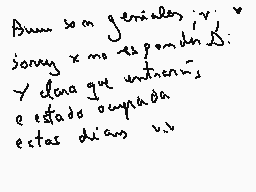 Auu son geniales ;v; ♥
Sorry x no responder D:
Y clara que entrarás
e estado ocupada
estos dias v.v